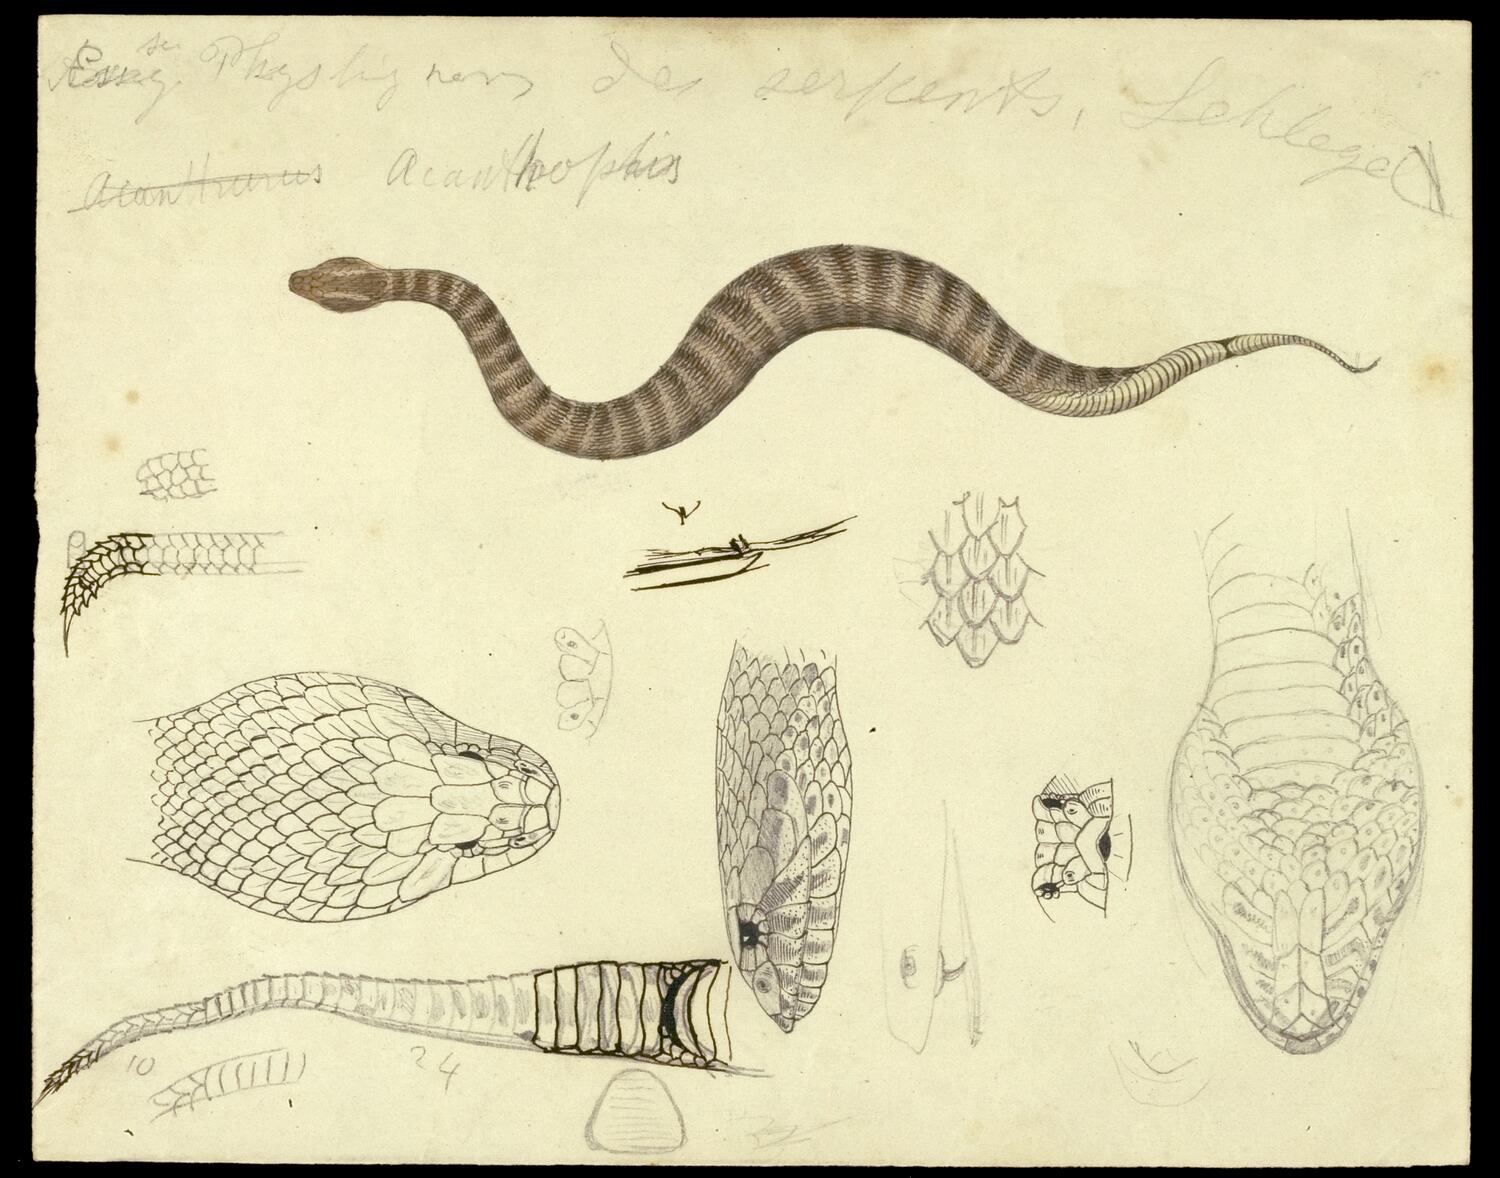 se
Essay Physiognom des serpents, Schlegel
Acanthurus Acanthophis
10
24